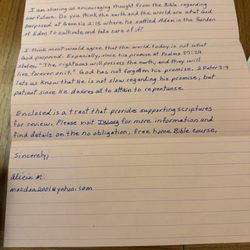 I am sharing an encouraging thought from the Bible regarding
our future. Do you think the earth and the world are what God
purposed at Genesis 2:15 where he settled Adam in the Garden
of Eden to cultivate and take care of it?
I think most would agree that the world today is not what
God purposed. Especially, since his promise at Psalms 37:29
states, "The righteous will possess the earth, and they will
live forever on it." God has not forgotten his promise. 2 Peter 3:9
lets us know that He is not slow regarding his promise, but
patient since He desires all to attain to repentance.
Enclosed is a tract that provides supporting scriptures
for review. Please visit JW.org for more information and
find details on the no obligation, free home Bible course.
Sincerely,
Alicia M.